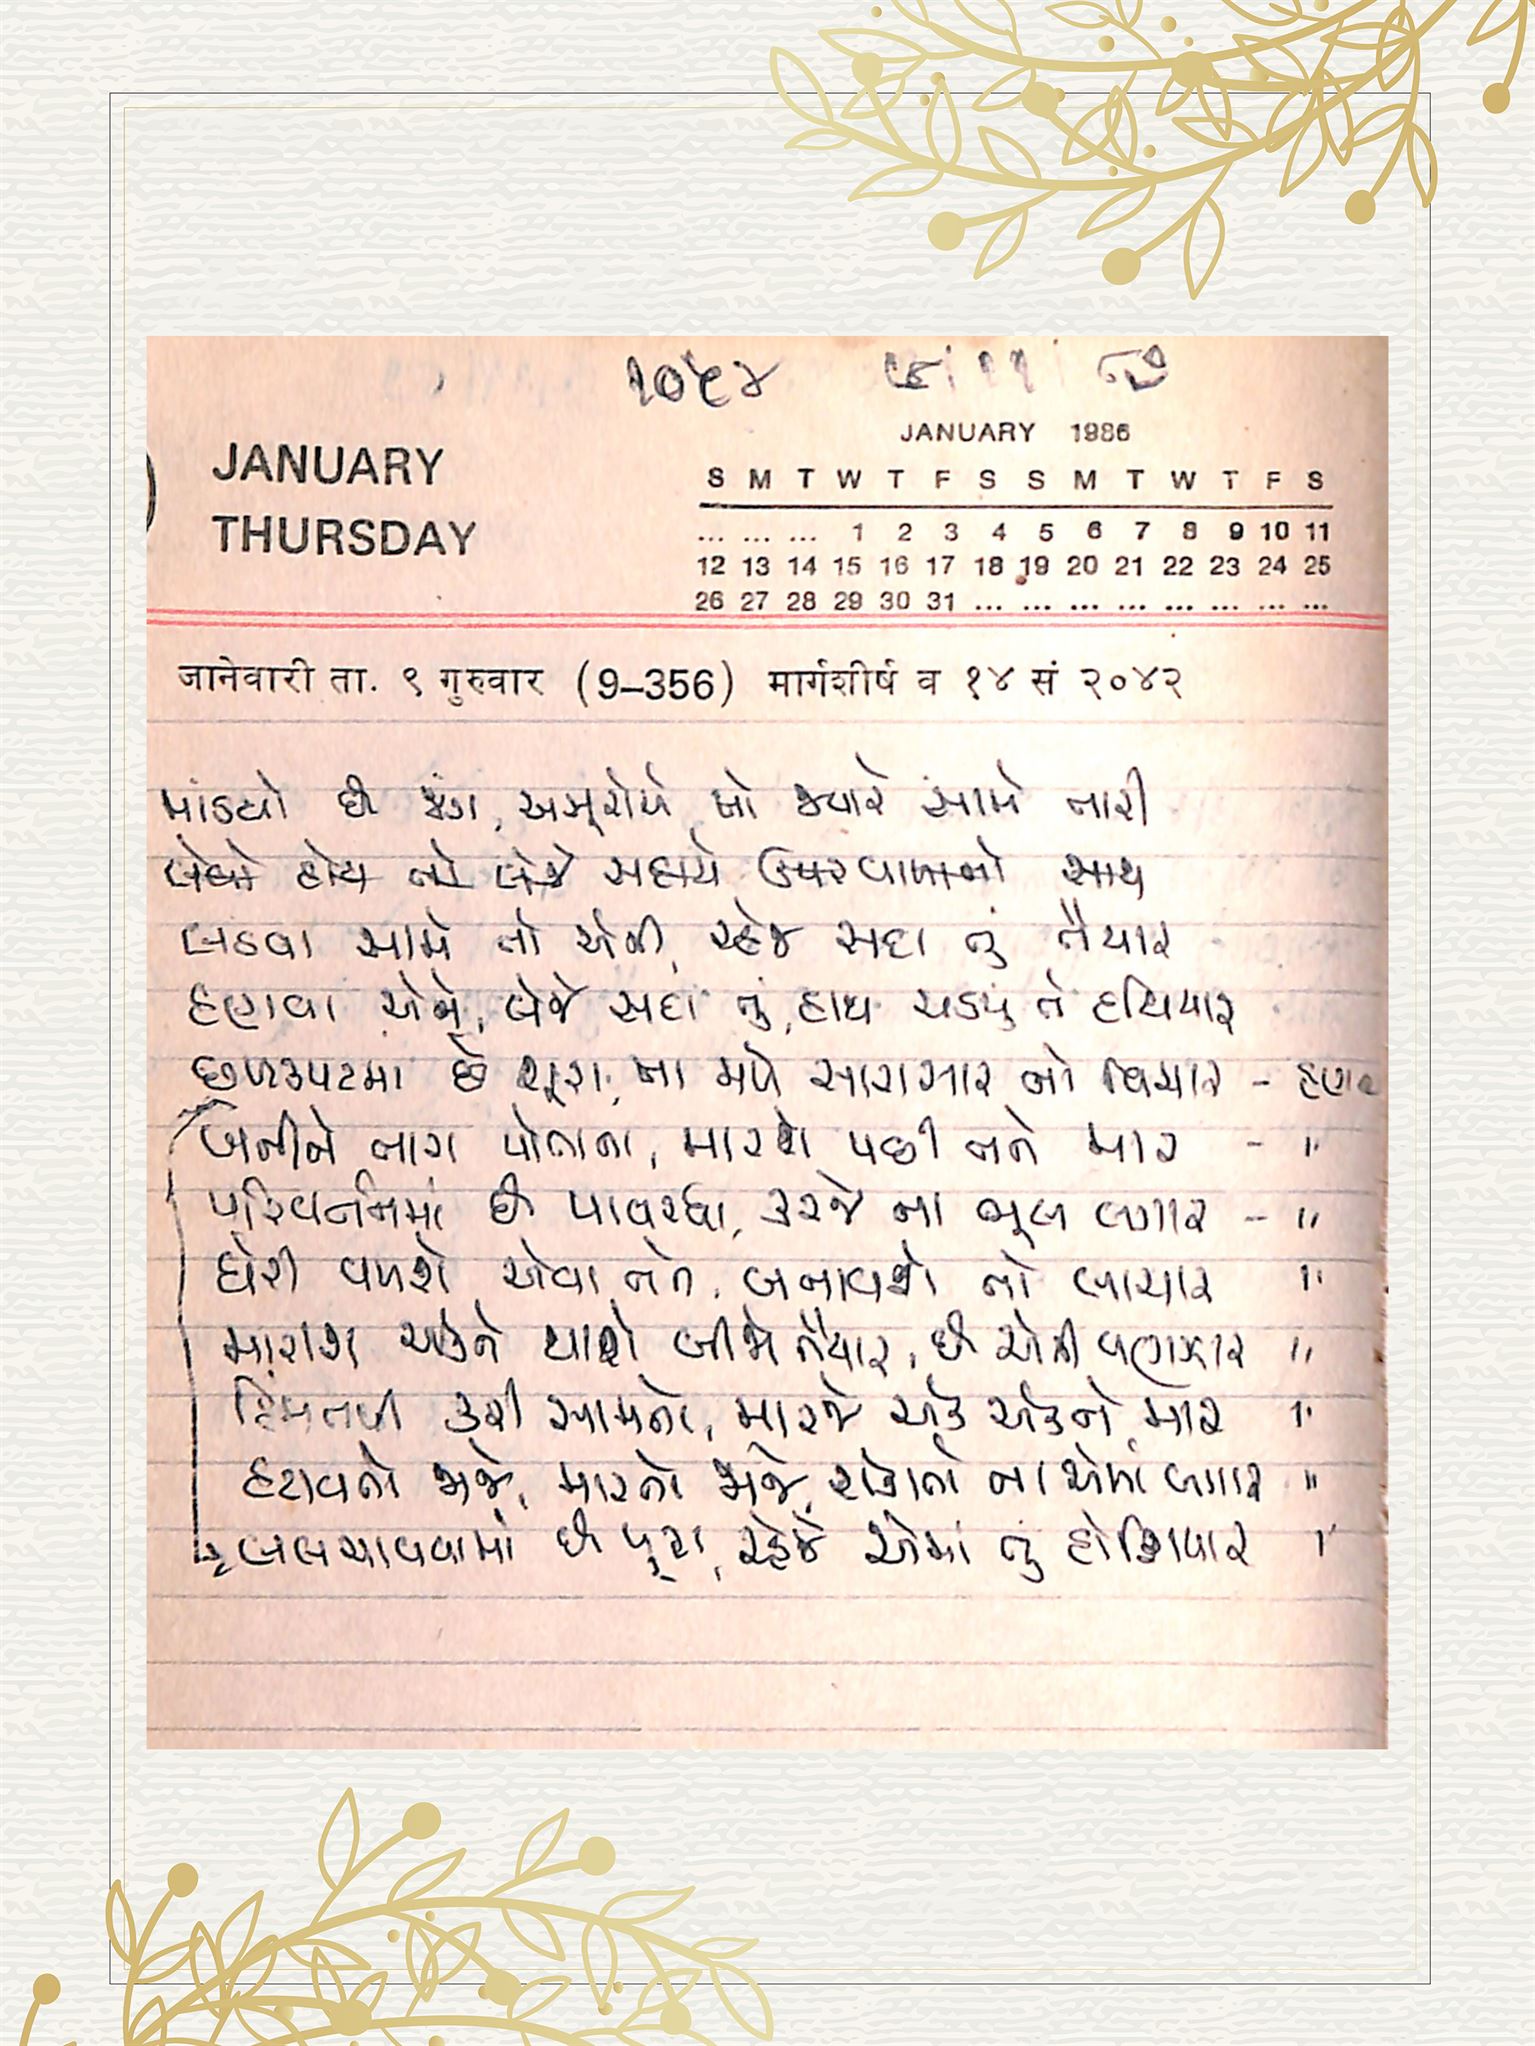 ૧૦૫૪
JANUARY 1986
JANUARY
THURSDAY
S M T W T F S S M T W T F S
... ... ... 1 2 3 4 5 6 7 8 9 10 11
12 13 14 15 16 17 18 19 20 21 22 23 24 25
26 27 28 29 30 31 ... ... ... ... ... ... ... ...
जानेवारी ता. ९ गुरुवार (9–356) मार्गशीर्ष व १४ सं २०४२
માંડયો છે જંગ, અસૂરોએ તો જ્યારે સામે તારી
લેવો હોય તો લેજે સદાયે ઉપરવાળાનો સાથ
લડવા સામે તો એની, રહેજે સદા તું તૈયાર
હણવા એને, લેજે સદા તું, હાથ ચડયું તે હથિયાર
છળકપટમાં છે શૂરા, ના મળે સારાસાર નો વિચાર - હણવા
બનીને નાગ પોતાના, મારશે પછી તને માર - "
પરિવર્તનમાં છે પાવરધા, કરજે ના ભૂલ લગાર - "
ઘેરી વળશે એવા તને, બનાવશે તો લાચાર "
મારીશ એકને થાશે બીજો તૈયાર, છે એની વણઝાર "
હિંમતથી કરી સામનો, મારજે એક એકને માર "
હટાવતો જાજે, મારતો જાજે, રોકાતો ના એમાં લગાર "
લલચાવવામાં છે પૂરા, રહેજે એમાં તું હોશિયાર "